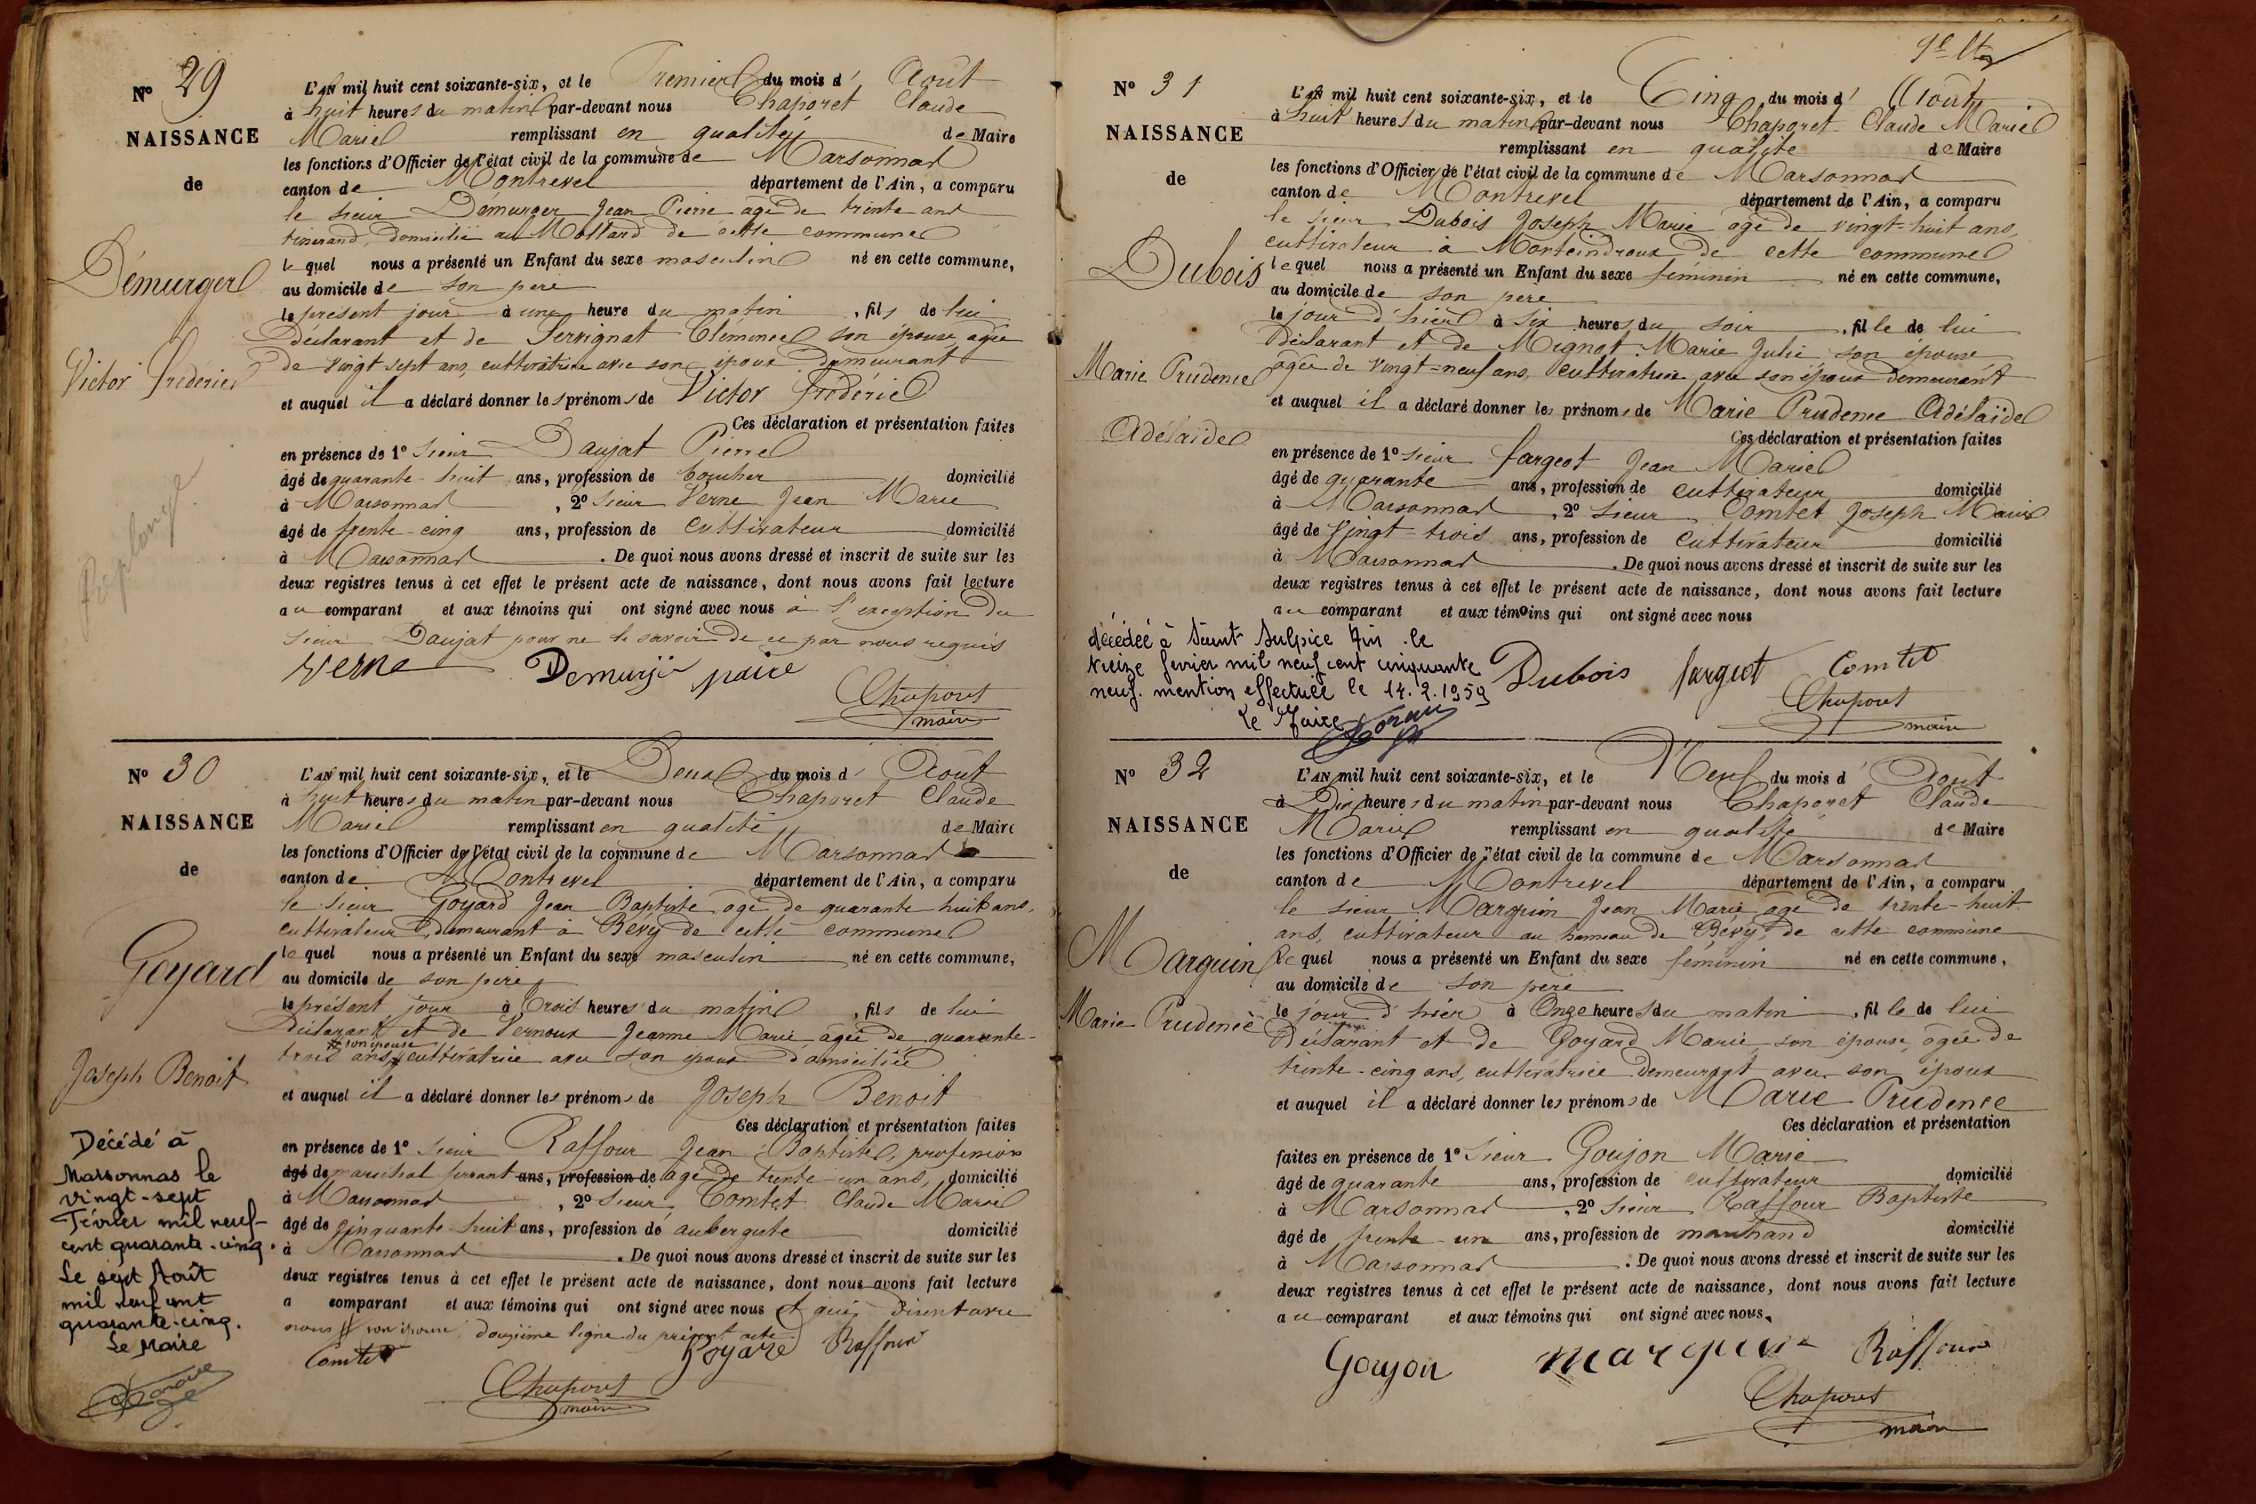 N° 29
NAISSANCE
de
Démurger
Victor Frédéric
L'AN mil huit cent soixante-six, et le Premier du mois d' Août
à huit heures du matin par-devant nous Chaporet Claude
Marie remplissant en qualité de Maire
les fonctions d'Officier de l'état civil de la commune de Marsonnas
canton de Montrevel département de l'Ain, a comparu
le sieur Démurger Jean Pierre âgé de trente ans
tisserand, domicilié au Mollard de cette commune
lequel nous a présenté un Enfant du sexe masculin né en cette commune,
au domicile de son père
le présent jour à une heure du matin, fils de lui
Déclarant et de Serrignat Clémence son épouse agée
de vingt sept ans, cultivatrice avec son époux demeurant
et auquel il a déclaré donner les prénoms de Victor Frédéric
Ces déclaration et présentation faites
en présence de 1° sieur Daujat Pierre
âgé de quarante-huit ans, profession de boucher domicilié
à Marsonnas, 2° sieur Verne Jean Marie
âgé de trente-cinq ans, profession de cultivateur domicilié
à Marsonnas. De quoi nous avons dressé et inscrit de suite sur les
deux registres tenus à cet effet le présent acte de naissance, dont nous avons fait lecture
au comparant et aux témoins qui ont signé avec nous à l'exception du
sieur Daujat pour ne le savoir de ce par nous requis
Verne Demurger paire
Chaporet
maire
N° 30
NAISSANCE
de
Goyard
Joseph Benoit
Décédé à
Marsonnas le
vingt-sept
Février mil neuf-
cent quarante-cinq.
Le sept Août
mil neuf cent
quarante-cinq.
Le Maire
L'AN mil huit cent soixante-six, et le Deux du mois d' Août
à huit heures du matin par-devant nous Chaporet Claude
Marie remplissant en qualité de Maire
les fonctions d'Officier de l'état civil de la commune de Marsonnas
canton de Montrevel département de l'Ain, a comparu
le sieur Goyard Jean Baptiste âgé de quarante huit ans,
cultivateur demeurant à Bévy de cette commune
lequel nous a présenté un Enfant du sexe masculin né en cette commune,
au domicile de son père
le présent jour à trois heures du matin, fils de lui
Déclarant et de Vernoux Jeanne Marie, agée de quarante-
# son épouse
trois ans # cultivatrice avec son époux domiciliée
et auquel il a déclaré donner les prénoms de Joseph Benoit
Ces déclaration et présentation faites
en présence de 1° sieur Raffour Jean Baptiste, profession
âgé de maréchal ferrant ans, profession de agé de trente-un ans, domicilié
à Marsonnas, 2° sieur Comtet Claude Marie
âgé de cinquante-huit ans, profession de aubergiste domicilié
à Marsonnas. De quoi nous avons dressé et inscrit de suite sur les
deux registres tenus à cet effet le présent acte de naissance, dont nous avons fait lecture
a comparant et aux témoins qui ont signé avec nous et qui
nous # son épouse, douzième ligne du présent acte
Comtet Goyard Raffour
Chaporet
maire
N° 31
NAISSANCE
de
Dubois
Marie Prudence
Adélaïde
L'AN mil huit cent soixante-six, et le Cinq du mois d' Août
à huit heures du matin par-devant nous Chaporet Claude Marie
remplissant en qualité de Maire
les fonctions d'Officier de l'état civil de la commune de Marsonnas
canton de Montrevel département de l'Ain, a comparu
le sieur Dubois Joseph Marie âgé de vingt-huit ans,
cultivateur à Monteindroux de cette commune
lequel nous a présenté un Enfant du sexe féminin né en cette commune,
au domicile de son père
le jour d'hier à six heures du soir, fille de lui
Déclarant et de Mignot Marie Julie son épouse
agée de vingt-neuf ans, cultivatrice avec son époux demeurant
et auquel il a déclaré donner les prénoms de Marie Prudence Adélaïde
Ces déclaration et présentation faites
en présence de 1° sieur Fargeot Jean Marie
âgé de quarante ans, profession de cultivateur domicilié
à Marsonnas, 2° sieur Comtet Joseph Marie
âgé de vingt-trois ans, profession de cultivateur domicilié
à Marsonnas. De quoi nous avons dressé et inscrit de suite sur les
deux registres tenus à cet effet le présent acte de naissance, dont nous avons fait lecture
au comparant et aux témoins qui ont signé avec nous
décédée à Saint Sulpice Ain le
treize février mil neuf cent cinquante
neuf. mention effectuée le 14.2.1959
Le Maire
Dubois fargeot Comtet
Chaporet
maire
N° 32
NAISSANCE
de
Marguin
Marie Prudence
L'AN mil huit cent soixante-six, et le Neuf du mois d' Août
à Dix heures du matin par-devant nous Chaporet Claude
Marie remplissant en qualité de Maire
les fonctions d'Officier de l'état civil de la commune de Marsonnas
canton de Montrevel département de l'Ain, a comparu
le sieur Marguin Jean Marie âgé de trente-huit
ans, cultivateur au hameau de Bévy de cette commune
lequel nous a présenté un Enfant du sexe féminin né en cette commune,
au domicile de son père
le jour d'hier à Onze heures du matin, fille de lui
Déclarant et de Goyard Marie son épouse, agée de
trente-cinq ans, cultivatrice demeurant avec son époux
et auquel il a déclaré donner les prénoms de Marie Prudence
Ces déclaration et présentation
faites en présence de 1° sieur Goujon Marie
âgé de quarante ans, profession de cultivateur domicilié
à Marsonnas, 2° sieur Raffour Baptiste
âgé de trente-un ans, profession de marchand domicilié
à Marsonnas. De quoi nous avons dressé et inscrit de suite sur les
deux registres tenus à cet effet le présent acte de naissance, dont nous avons fait lecture
au comparant et aux témoins qui ont signé avec nous.
Goujon Marguin Raffour
Chaporet
maire